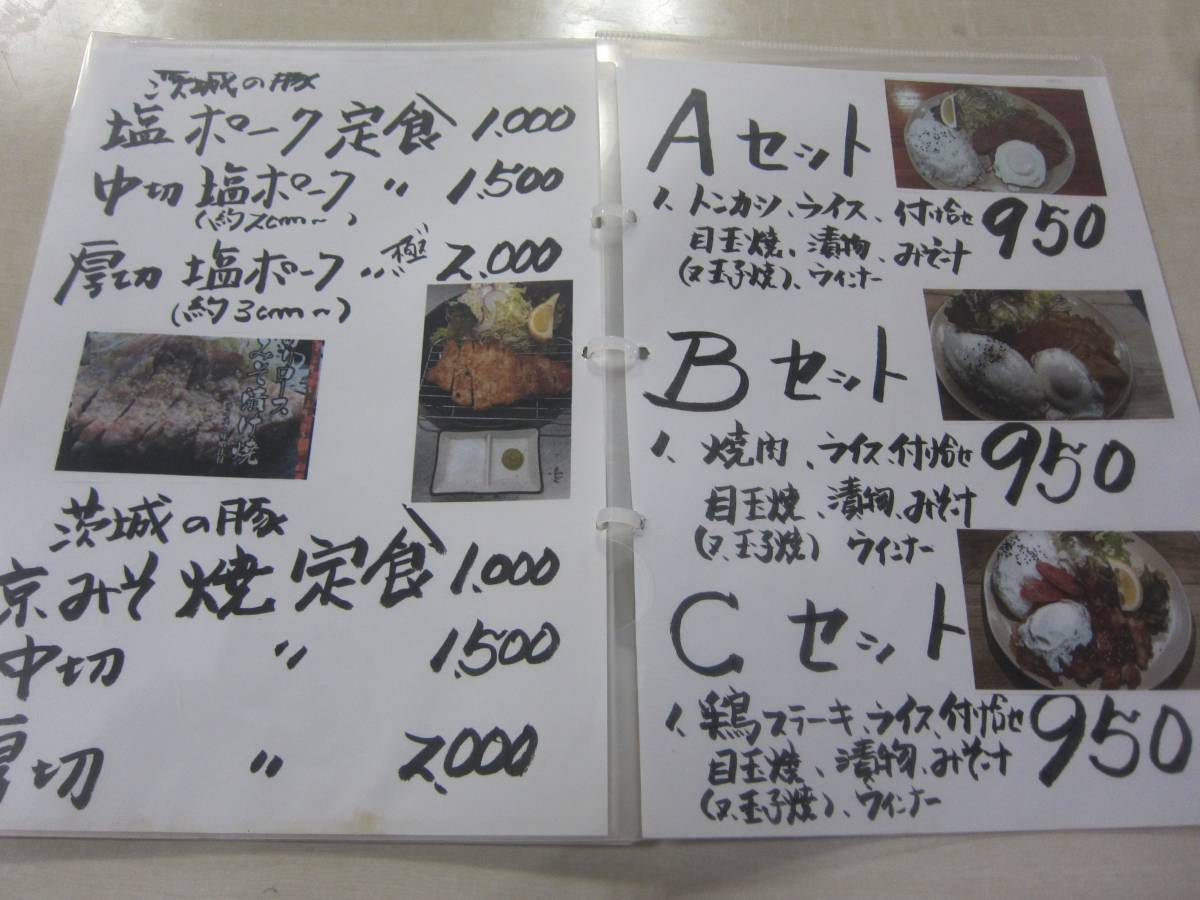 茨城の豚
塩ポーク定食 1,000
中切 塩ポーク 〃 1,500
(約2cm〜)
厚切 塩ポーク 〃 極 2,000
(約3cm〜)
茨城の豚
京みそ焼定食 1,000
中切 〃 1,500
厚切 〃 2,000
Aセット
1、トンカツ、ライス、付け合せ 950
目玉焼、漬物、みそ汁
(又、玉子焼)、ウィンナー
Bセット
1、焼肉、ライス、付け合せ 950
目玉焼、漬物、みそ汁
(又、玉子焼) ウインナー
Cセット
1、鶏ステーキ、ライス、付け合せ 950
目玉焼、漬物、みそ汁
(又、玉子焼)、ウィンナー